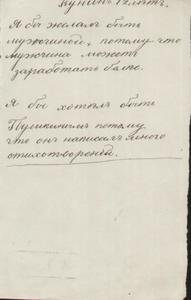 Я бы желалъ быть
мужчиной, потому что
мужчина можетъ
заработать болѣе.
Я бы хотѣлъ быть
Пушкинымъ потому
что онъ написалъ много
стихотвореній.